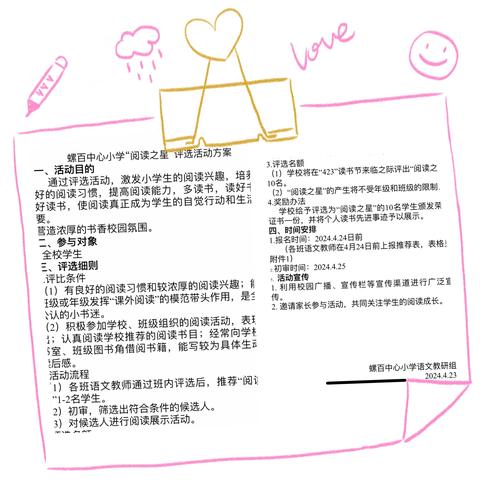 love
螺百中心小学“阅读之星”评选活动方案
一、活动目的
通过评选活动，激发小学生的阅读兴趣，培养
好的阅读习惯，提高阅读能力，多读书，读好书
好读书，使阅读真正成为学生的自觉行动和生活
要。
营造浓厚的书香校园氛围。
二、参与对象
全校学生
三、评选细则
评比条件
（1）有良好的阅读习惯和较浓厚的阅读兴趣；能
班级或年级发挥“课外阅读”的模范带头作用，是全
公认的小书迷。
（2）积极参加学校、班级组织的阅读活动，表现
出；认真阅读学校推荐的阅读书目；经常向学校
书室、班级图书角借阅书籍，能写较为具体生动
读后感。
活动流程
1）各班语文教师通过班内评选后，推荐“阅读
”1-2名学生。
2）初审，筛选出符合条件的候选人。
3）对候选人进行阅读展示活动。
3.评选名额
（1）学校将在“423”读书节来临之际评出“阅读之
10名。
（2）“阅读之星”的产生将不受年级和班级的限制.
4.奖励办法
学校给予评选为“阅读之星”的10名学生颁发荣
证书一份，并将个人读书先进事迹予以展示。
四、时间安排
1.报名时间：2024.4.24日前
（各班语文教师在4月24日前上报推荐表，表格见
附件1）
初审时间：2024.4.25
活动宣传
1. 利用校园广播、宣传栏等宣传渠道进行广泛宣
传。
2. 邀请家长参与活动，共同关注学生的阅读成长。
螺百中心小学语文教研组
2024.4.23